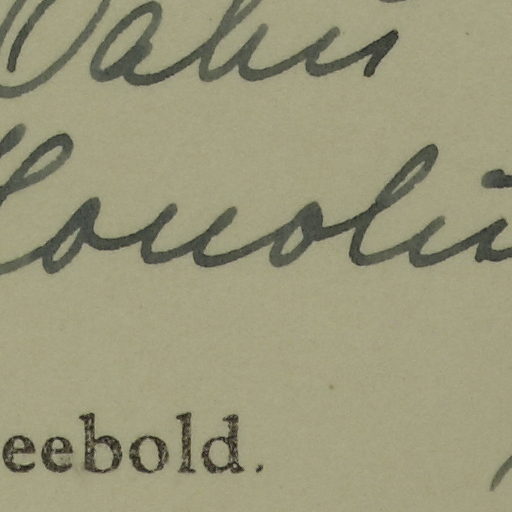 Oahu
Honolu
eebold.